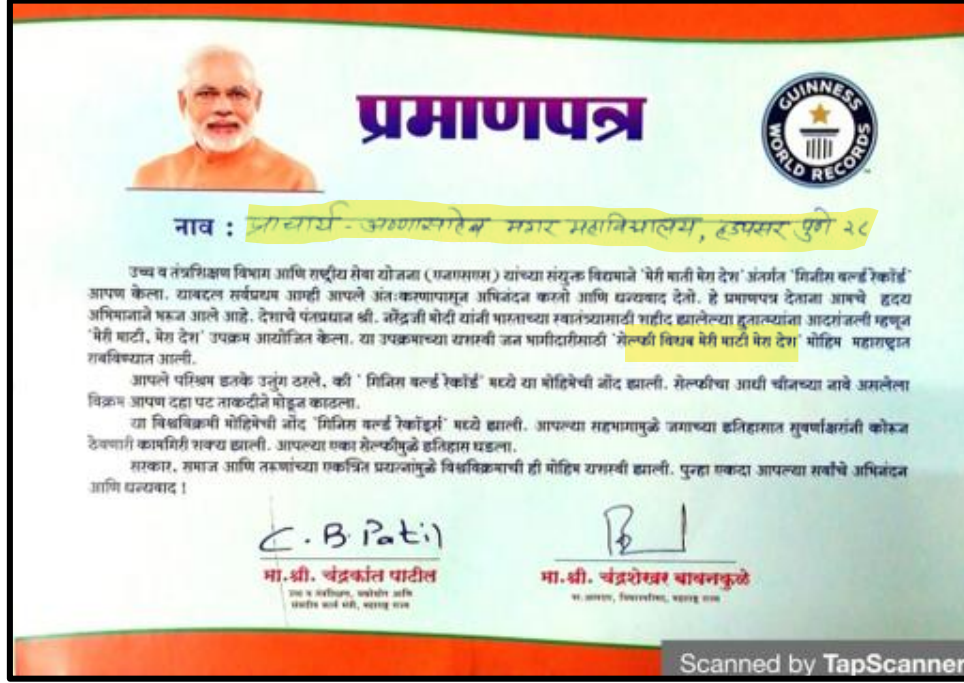 प्रमाणपत्र
GUINNESS
WORLD RECORDS
नाव : प्राचार्य - अण्णासाहेब मगर महाविद्यालय, हडपसर पुणे २८
उच्च व तंत्रशिक्षण विभाग आणि राष्ट्रीय सेवा योजना (एनएसएस) यांच्या संयुक्त विद्यमाने 'मेरी माती मेरा देश' अंतर्गत 'गिनीस वर्ल्ड रेकॉर्ड'
आपण केला. याबद्दल सर्वप्रथम आम्ही आपले अंतःकरणापासून अभिनंदन करतो आणि धन्यवाद देतो. हे प्रमाणपत्र देताना आमचे हृदय
अभिमानाने भरून आले आहे. देशाचे पंतप्रधान श्री. नरेंद्रजी मोदी यांनी भारताच्या स्वातंत्र्यासाठी शहीद झालेल्या हुतात्म्यांना आदरांजली म्हणून
'मेरी माटी, मेरा देश' उपक्रम आयोजित केला. या उपक्रमाच्या यशस्वी जन भागीदारीसाठी 'सेल्फी विथ मेरी माटी मेरा देश' मोहिम महाराष्ट्रात
राबविण्यात आली.
आपले परिश्रम इतके उत्तुंग ठरले, की ' गिनिस वर्ल्ड रेकॉर्ड' मध्ये या मोहिमेची नोंद झाली. सेल्फीचा आधी चीनच्या नावे असलेला
विक्रम आपण दहा पट ताकदीने मोडून काढला.
या विश्वविक्रमी मोहिमेची नोंद 'गिनिस वर्ल्ड रेकॉर्ड्स' मध्ये झाली. आपल्या सहभागामुळे जगाच्या इतिहासात सुवर्णाक्षरांनी कोरून
ठेवणारी कामगिरी शक्य झाली. आपल्या एका सेल्फीमुळे इतिहास घडला.
सरकार, समाज आणि तरूणांच्या एकत्रित प्रयत्नांमुळे विश्वविक्रमाची ही मोहिम यशस्वी झाली. पुन्हा एकदा आपल्या सर्वांचे अभिनंदन
आणि धन्यवाद !
C. B. Patil
मा.श्री. चंद्रकांत पाटील
मा.श्री. चंद्रशेखर बावनकुळे
Scanned by TapScanner